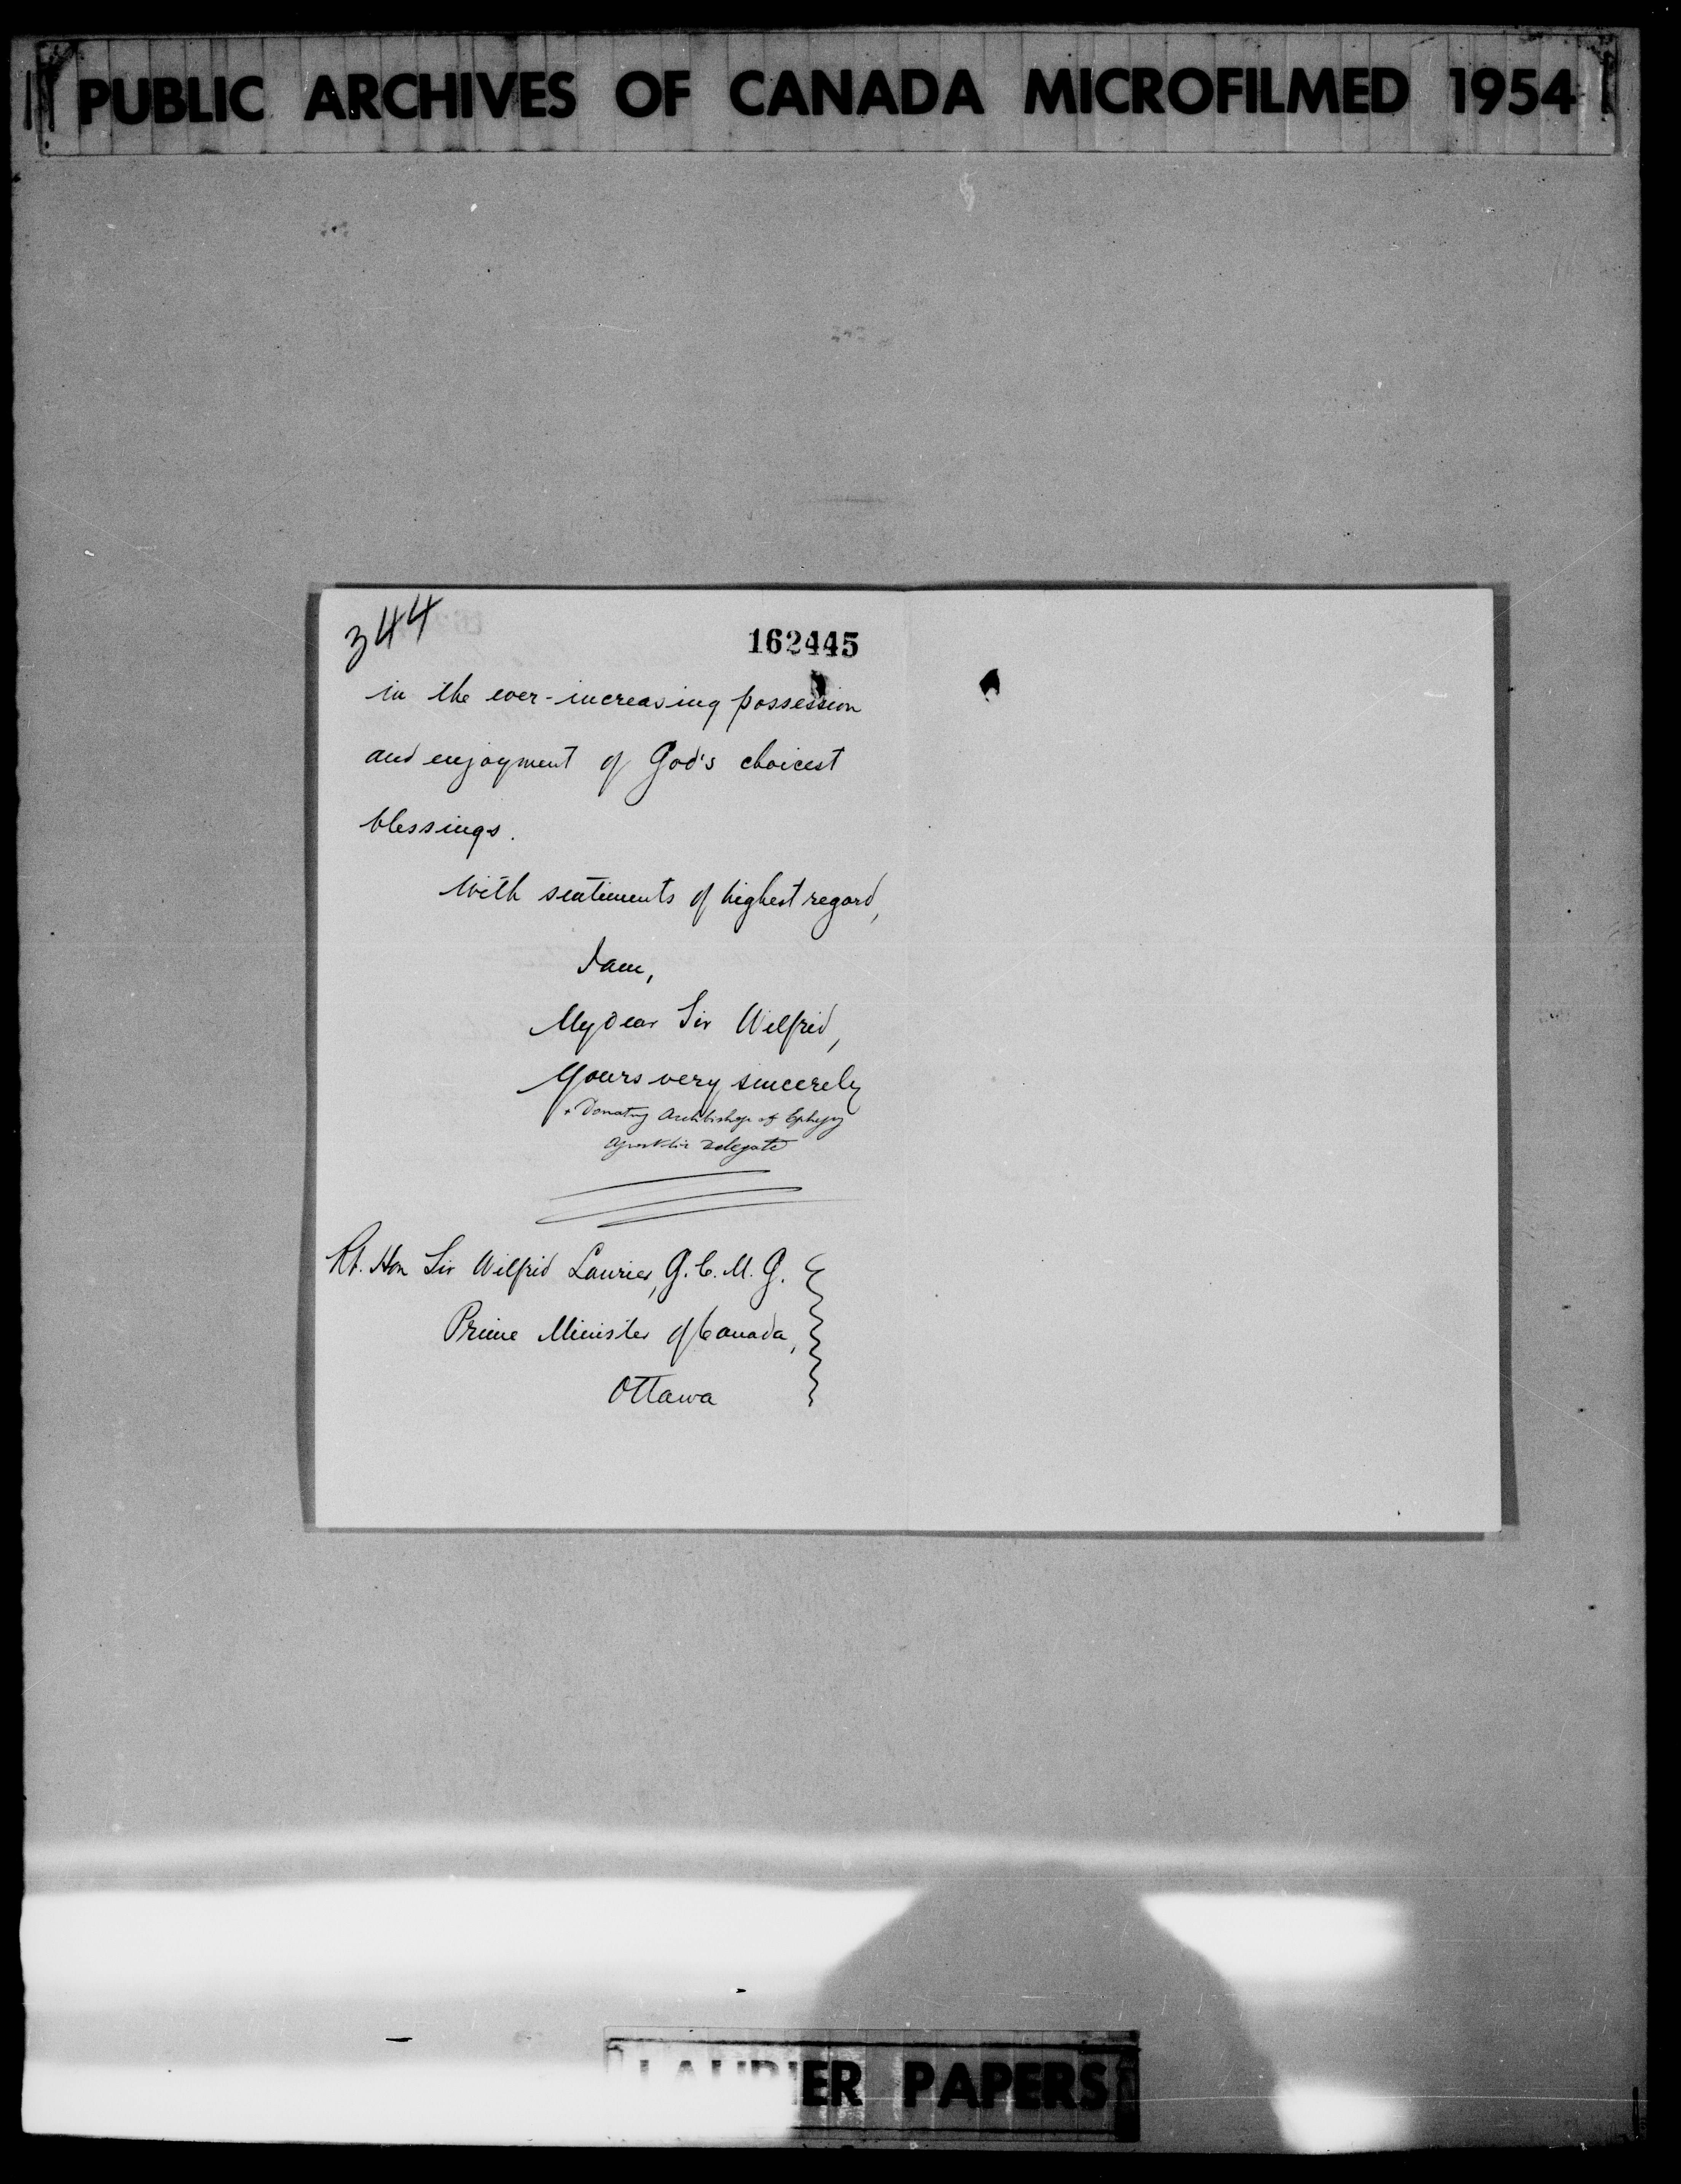 PUBLIC ARCHIVES OF CANADA MICROFILMED 1954
344
162445
in the ever-increasing possession
and enjoyment of God's choicest
blessings.
With sentiments of highest regard,
I am,
My dear Sir Wilfrid,
Yours very sincerely
+ Donatus Archbishop of Ephesus
Apostolic Delegate
Rt. Hon Sir Wilfrid Laurier, G.C.M.G.
Prime Minister of Canada,
Ottawa
LAURIER PAPERS